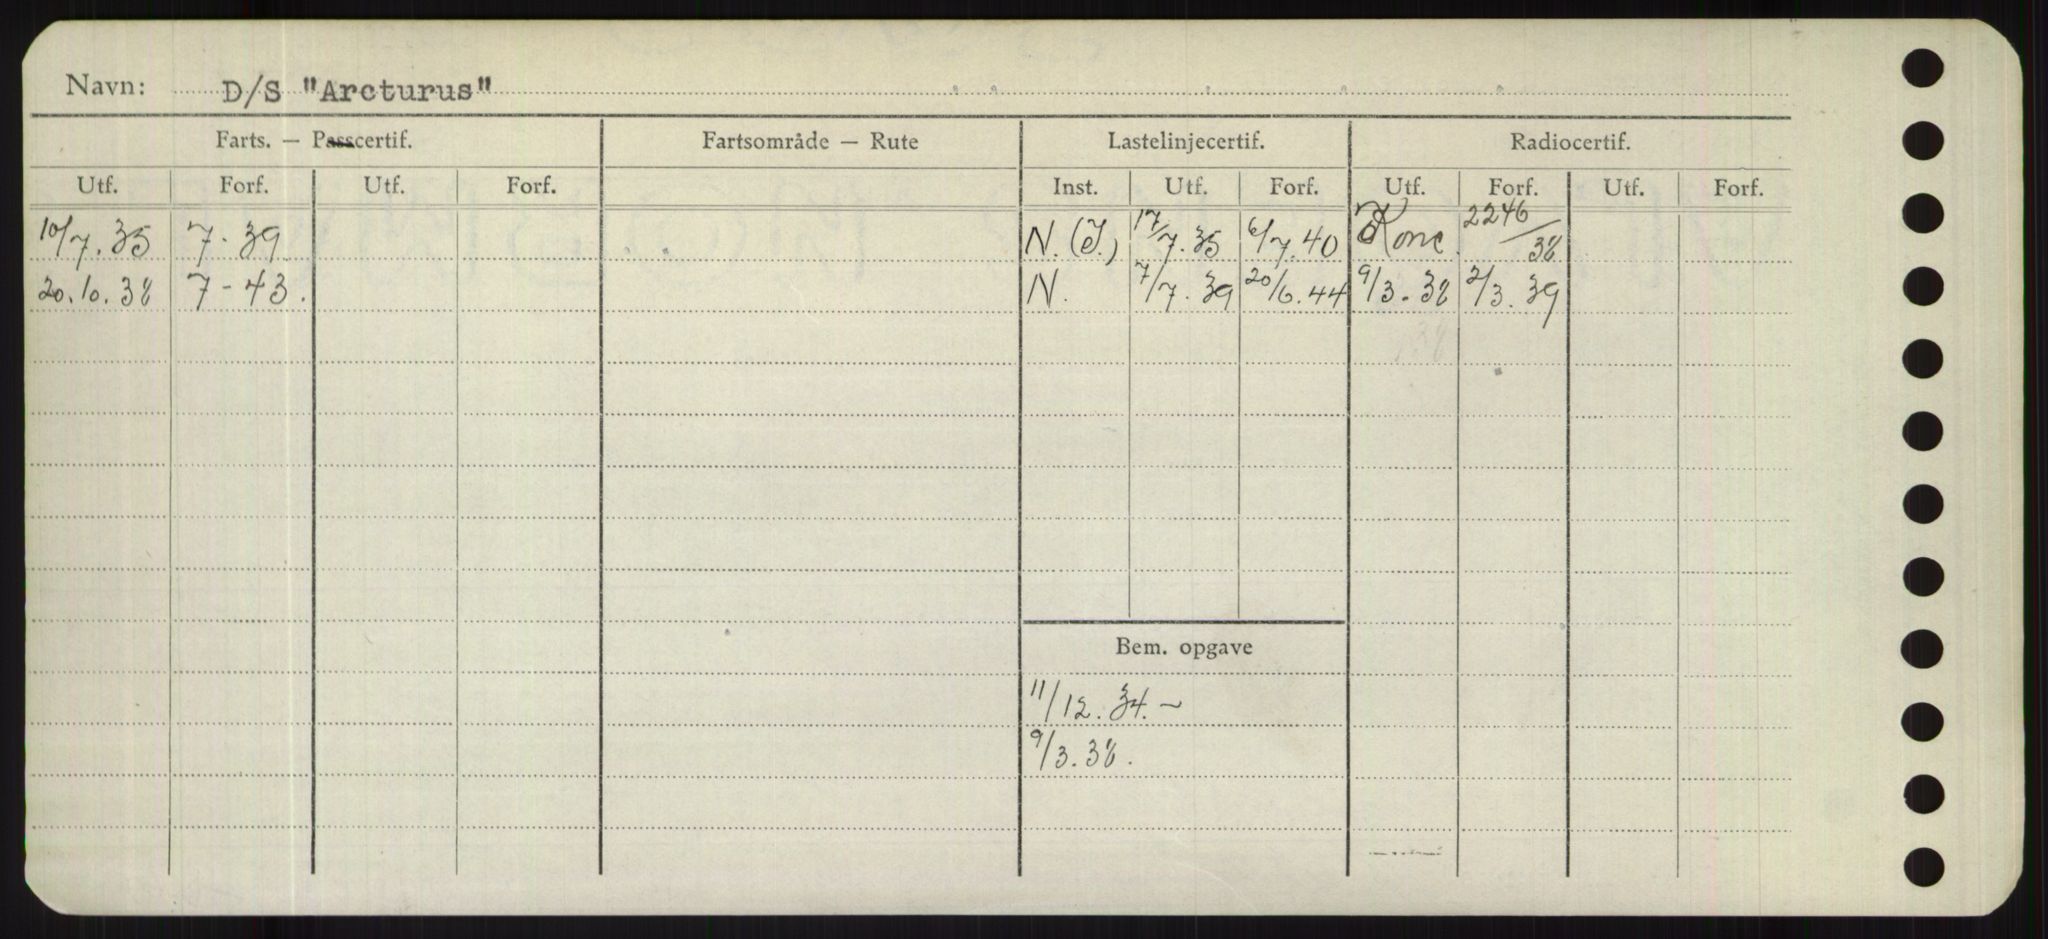 Navn: D/S "Arcturus"
Farts. — Passcertif. Fartsområde — Rute Lastelinjecertif. Radiocertif.
Utf. Forf. Utf. Forf. Inst. Utf. Forf. Utf. Forf. Utf. Forf.
10/7.35 7.39 N.(I.) 17/7.35 6/7.40 Konc. 2246/38
20.10.38 7-43. N. 7/7.39 20/6.44 9/3.38 2/3.39
Bem. opgave
11/12.34.~
9/3.38.